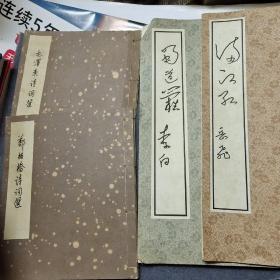 连续5年
毛泽东诗词选
郑板桥诗词选
蜀道难 李白
满江红 岳飞